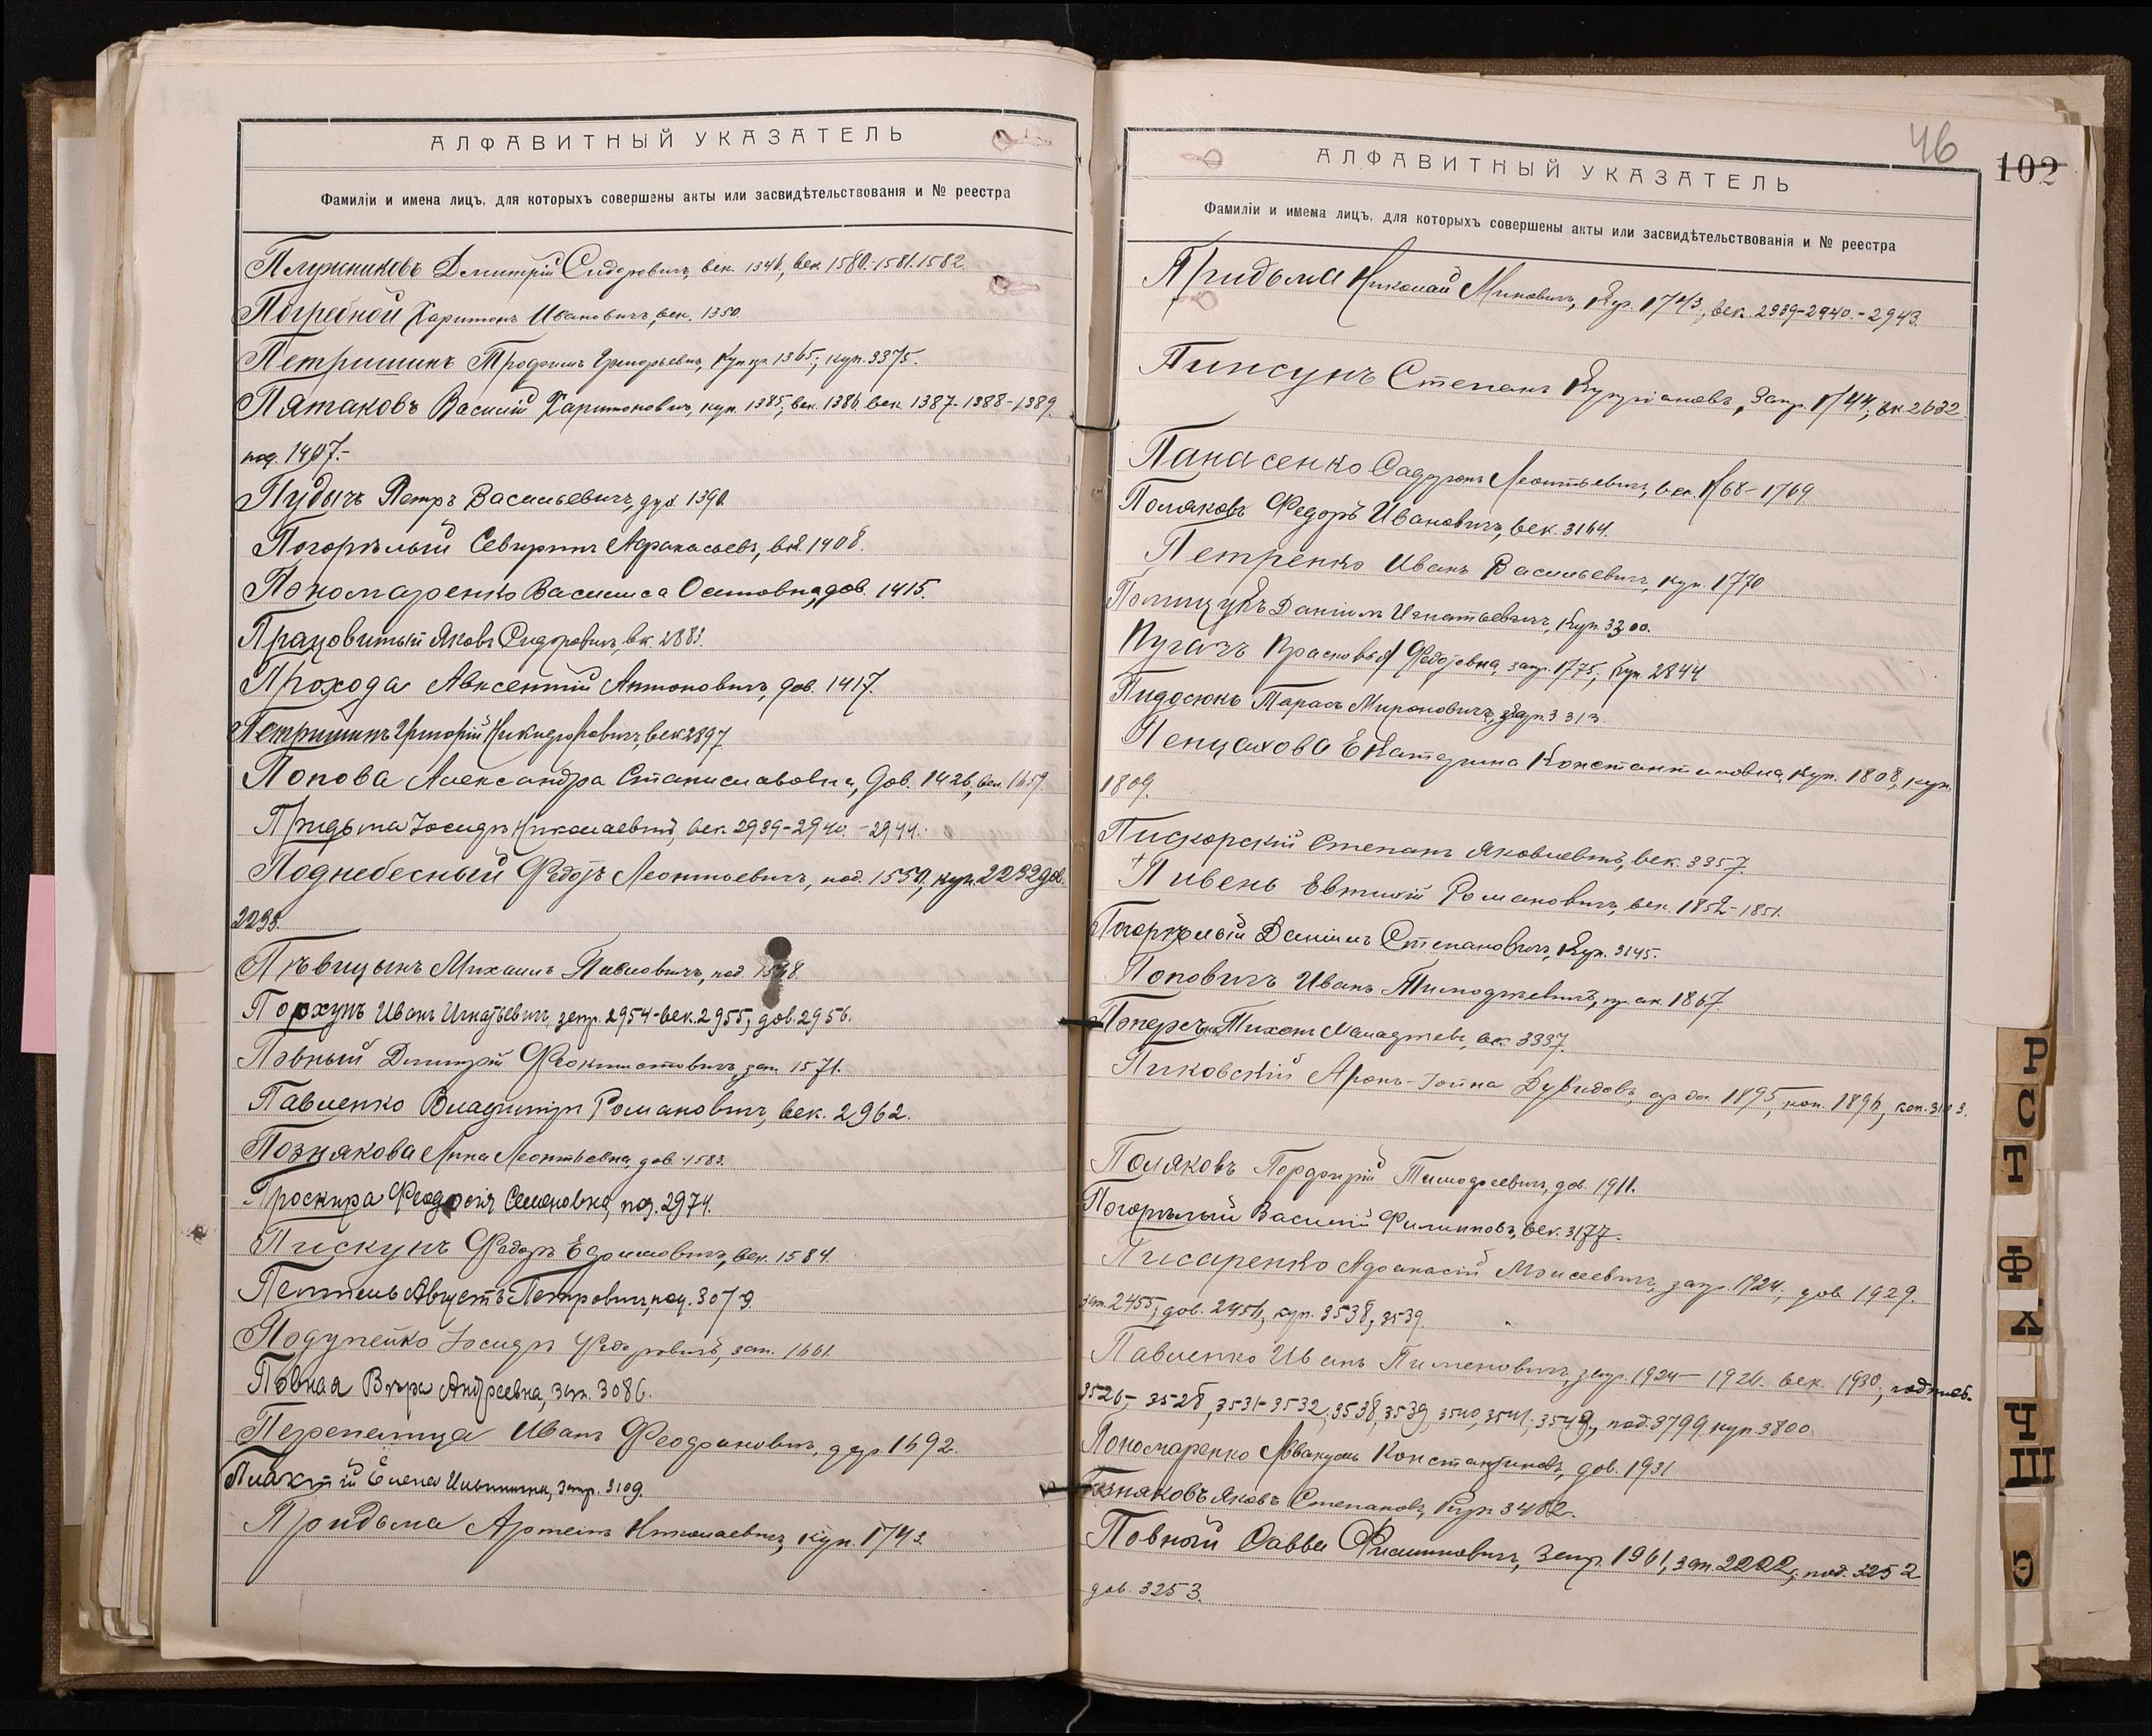 АЛФАВИТНЫЙ УКАЗАТЕЛЬ
Фамиліи и имена лицъ, для которыхъ совершены акты или засвидѣтельствованія и № реестра
Плужниковъ Дмитрій Сидоровичъ, век. 1346, век. 1580-1581.1582.
Погребной Харитонъ Ивановичъ, век. 1350.
Петришинъ Трофимъ Григорьевичъ, 1365; куп. 3375.
Пятаковъ Василій Харитоновичъ, куп. 1385; век. 1386 век. 1387-1388-1389.
1407.-
Пудычъ Петръ Васильевичъ, дух. 1390.
Погорѣлый Северинъ Афанасьевъ, 1408.
Пономаренко Василиса Осиповна, дов. 1415.
Працовитый Яковъ Сидоровичъ, вк. 2883.
Прохода Авксентій Антоновичъ, дов. 1417.
Петришинъ Григорій Никифоровичъ, век 2897
Попова Александра Станиславовна, дов. 1426, век. 1659.
Придыма Іосифъ Николаевичъ, век. 2939-2940.-2944.
Поднебесный Федоръ Леонтьевичъ, под. 1550, куп. 2232 дов.
2233.
Пѣвицынъ Михаилъ Павловичъ, под.
Порхунъ Иванъ Игнатьевичъ, запр. 2954-век. 2955, дов. 2956.
Повный Дмитрій Феоктистовичъ, зап. 1571.
Павленко Владиміръ Романовичъ, век. 2962.
Познякова Анна Леонтьевна, дов. 1583.
Проскура Феодосія Семеновна, под. 2974.
Пискунъ Федоръ Ефимовичъ, век. 1584.
Августъ Петровичъ, под. 3079.
Іосифъ Федоровичъ, зап. 1661.
Повная Вѣра Андреевна, зап. 3086.
Перепелица Иванъ Феофановичъ, 1692.
Плахтій Елена Ильинична, запр. 3109.
Придыма Артемъ Николаевичъ, куп. 1743.
46
102
АЛФАВИТНЫЙ УКАЗАТЕЛЬ
Фамиліи и имема лицъ, для которыхъ совершены акты или засвидѣтельствованія и № реестра
Придыма Николай Миновичъ, Куп. 1743, век. 2939-2940.-2943.
Пинсунъ Степанъ Купріановъ, Запр. 1744, вк 2632
Панасенко Сафронъ Леонтьевичъ, век. 1768-1769
Поляковъ Федоръ Ивановичъ, век. 3164.
Петренко Иванъ Васильевичъ, куп. 1770
Полищукъ Даніилъ Игнатьевичъ, Куп. 3200.
Пугачъ Прасковья Федоровна, запр. 1775, Куп. 2844
Пидосюкъ Тарасъ Мироновичъ, запр. 3313.
Пенцахова Екатерина Константиновна, Куп. 1808, куп.
1809.
Пискорскій Степанъ Яковлевичъ, век. 3357.
Пивень Евтихій Романовичъ, век. 1852-1851.
Погорѣлый Даніилъ Степановичъ, Куп. 3145.
Поповичъ Иванъ Тимофеевичъ, 1867
Тихонъ, вк. 3337.
Пиковскій Аронъ-Іойна Дувидовъ, 1895, коп. 1896,
Поляковъ Порфирій Тимофеевичъ, дов. 1911.
Погорѣлый Василій Филипповъ, век. 3177.
Писаренко Афанасій Моисеевичъ, запр. 1924, дов. 1929.
зап. 2455, дов. 2456, куп. 3538, 3539.
Павленко Иванъ Пименовичъ, запр. 1924-1926. век. 1930,
3526,-3528, 3531-3532, 3538, 3539, 3540, 3541, 3549, под. 3799 куп. 3800.
Пономаренко Аввакумъ Константиновъ, дов. 1931
Позняковъ Яковъ Степановъ, Куп. 3482.
Повный Савва Филипповичъ, запр. 1961, зап. 2222, под. 3252
дов. 3253.
Р
С
Т
Ф
Х
Ч
Ш
Э